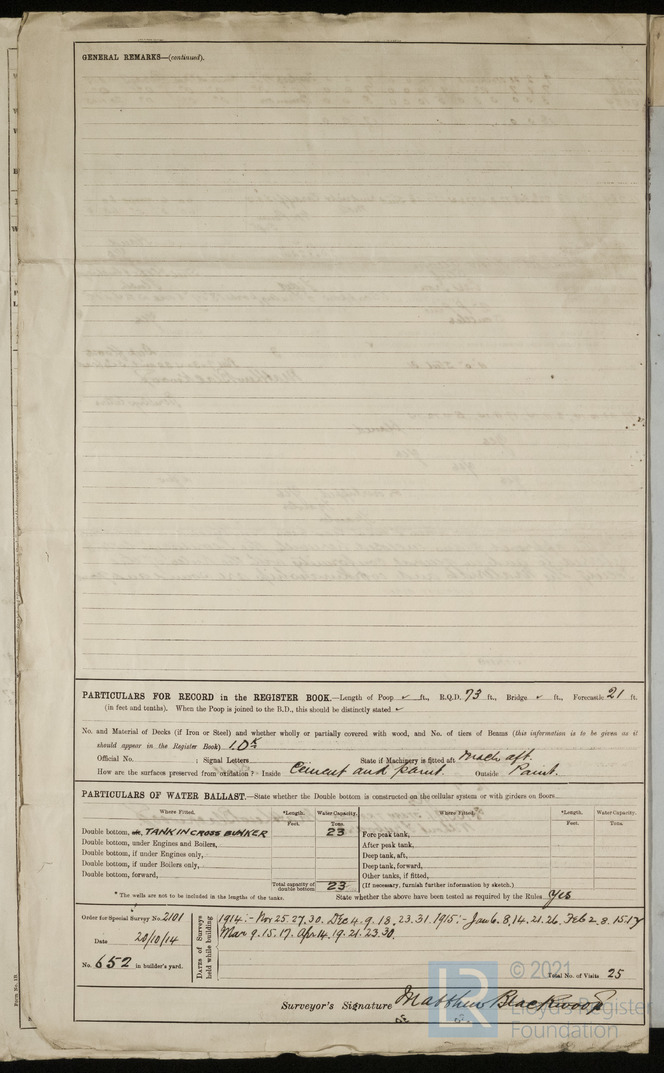 GENERAL REMARKS—(continued).
PARTICULARS FOR RECORD in the REGISTER BOOK.—Length of Poop ✓ ft., R.Q.D. 73 ft., Bridge ✓ ft., Forecastle 21 ft.
(in feet and tenths). When the Poop is joined to the B.D., this should be distinctly stated ✓
No. and Material of Decks (if Iron or Steel) and whether wholly or partially covered with wood, and No. of tiers of Beams (this information is to be given as it
should appear in the Register Book) 1 Dk
Official No. ; Signal Letters State if Machinery is fitted aft Mach. aft.
How are the surfaces preserved from oxidation? Inside Cement and paint. Outside Paint.
PARTICULARS OF WATER BALLAST.—State whether the Double bottom is constructed on the cellular system or with girders on floors
Where Fitted. *Length. Water Capacity. Where Fitted. *Length. Water Capacity.
Feet. Tons. Feet. Tons.
Double bottom, TANK IN CROSS BUNKER 23 Fore peak tank,
Double bottom, under Engines and Boilers, After peak tank,
Double bottom, if under Engines only, Deep tank, aft,
Double bottom, if under Boilers only, Deep tank, forward,
Double bottom, forward, Other tanks, if fitted,
Total capacity of double bottom 23 (If necessary, furnish further information by sketch.)
* The wells are not to be included in the lengths of the tanks. State whether the above have been tested as required by the Rules Yes
Order for Special Survey No. 2101
Date 20/10/14
No. 652 in builder's yard.
DATES of Surveys held while building
1914:- Nov 25. 27. 30. Dec 4. 9. 18. 23. 31. 1915:- Jan 6. 8, 14. 21. 26. Feb 2. 8. 15. 17
Mar 9. 15. 17. Apr 14. 19. 21. 23. 30.
Total No. of Visits 25
Surveyor's Signature Matthew Blackwood
Form No. 1B.
© 2021
LR
Lloyd's Register
Foundation